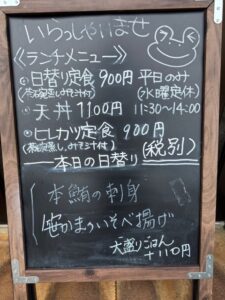 いらっしゃいませ
《ランチメニュー》
◎日替り定食 900円 平日のみ
(茶碗蒸し、みそ汁付) (水曜定休)
◎天丼 1100円 11:30〜14:00
◎ヒレカツ定食 900円
(茶碗蒸し、みそ汁付) (税別)
本日の日替り
本鮪の刺身
笹かまのいそべ揚げ
大盛りごはん
+110円